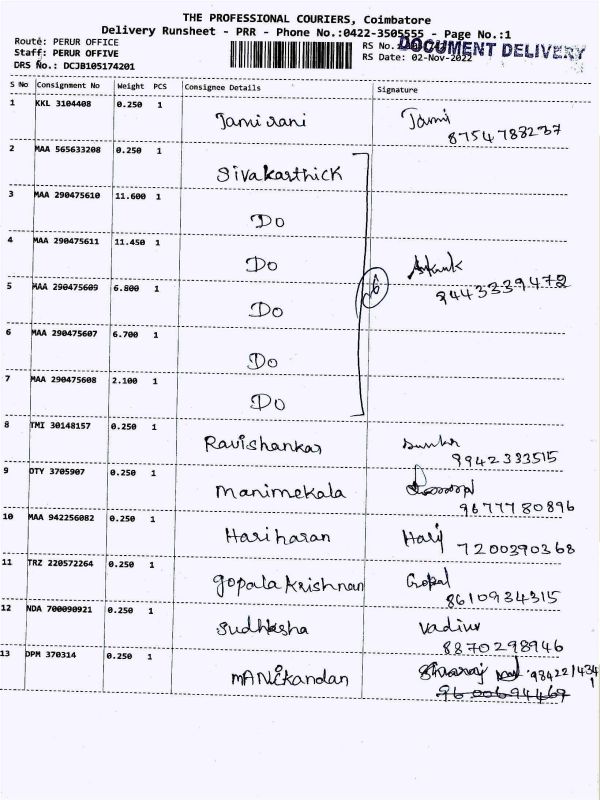 THE PROFESSIONAL COURIERS, Coimbatore
Delivery Runsheet - PRR - Phone No.:0422-3505555 - Page No.:1
Route: PERUR OFFICE
Staff: PERUR OFFIVE
DRS No.: DCJB105174201
RS No.
DOCUMENT DELIVERY
RS Date: 02-Nov-2022
S No Consignment No Weight PCS Consignee Details Signature
1 KKL 3104408 0.250 1 Jamirani Jami
8754788237
2 MAA 565633208 0.250 1 Sivakarthick
3 MAA 290475610 11.600 1 Do
4 MAA 290475611 11.450 1 Do
5 MAA 290475609 6.800 1 Do 6 9443339472
6 MAA 290475607 6.700 1 Do
7 MAA 290475608 2.100 1 Do
8 TMI 30148157 0.250 1 Ravishankar
9942333515
9 OTY 3705907 0.250 1 Manimekala
9677780896
10 MAA 942256082 0.250 1 Hariharan Harij 7200390368
11 TRZ 220572264 0.250 1 gopala krishnan Gopal
8610934315
12 NDA 700090921 0.250 1 Sudheesha Vadivu
8870298946
13 DPM 370314 0.250 1 MANickandan
9600694469